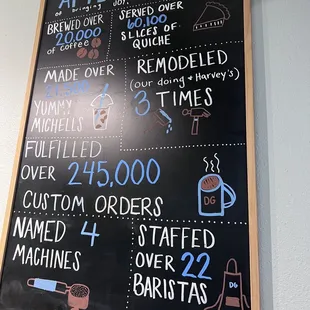 of bringing JOY.
BREWED OVER
20,000
of coffee
SERVED OVER
60,100
SLICES OF
QUICHE
MADE OVER
YUMMY
MICHELLS
REMODELED
(our doing & Harvey's)
3 TIMES
FULFILLED
OVER 245,000
CUSTOM ORDERS
DG
NAMED 4
MACHINES
STAFFED
OVER 22
BARISTAS
DG